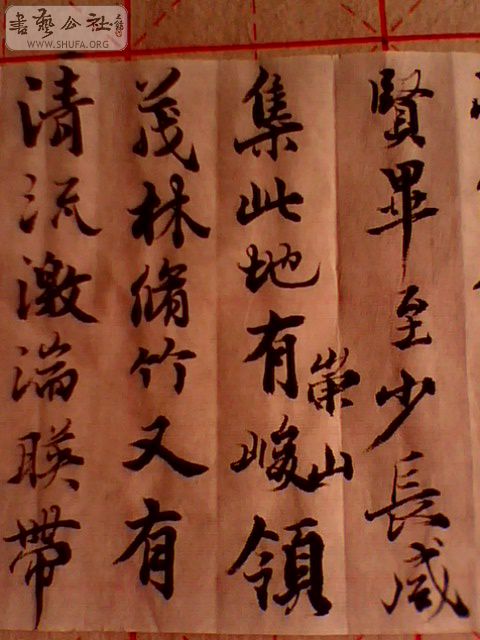 賢畢至少長咸
集此地有崇山峻領
茂林脩竹又有
清流激湍暎帶
書藝公社
WWW.SHUFA.ORG